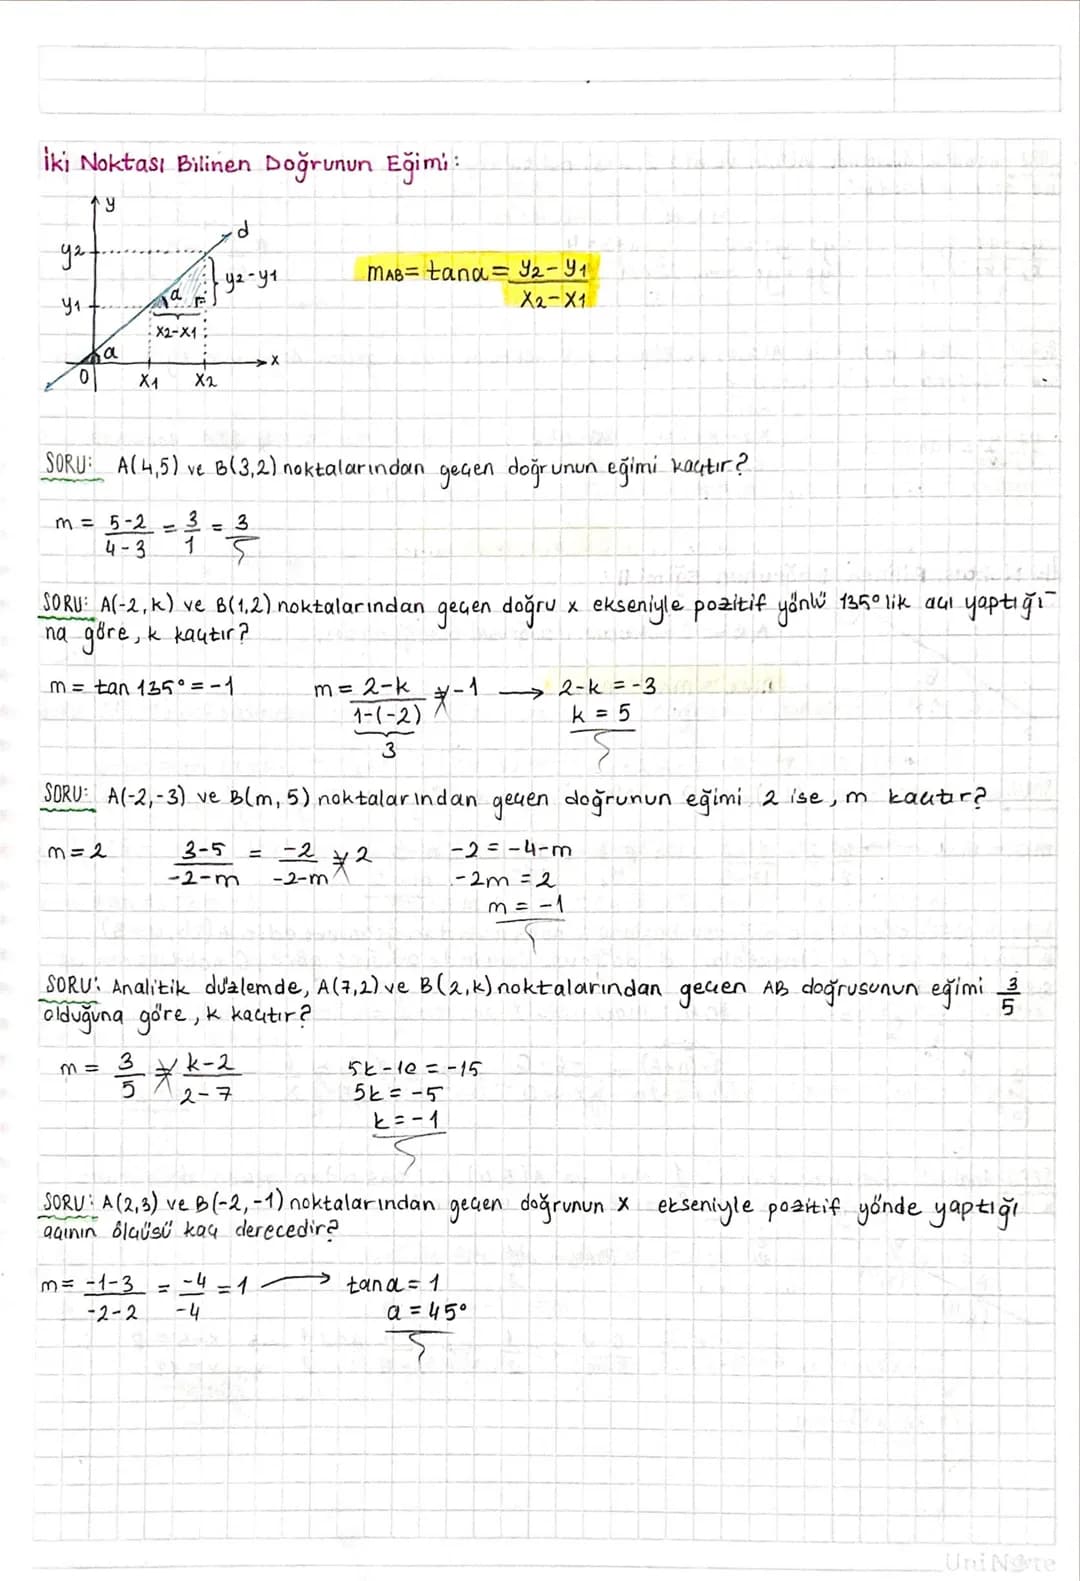 İki Noktası Bilinen Doğrunun Eğimi:
y
d
y2
y2-y1
mAB = tana = y2-y1 / x2-x1
y1
a
x2-x1
a
x
0 x1 x2
SORU: A(4,5) ve B(3,2) noktalarından geçen doğrunun eğimi kaçtır?
m = 5-2 / 4-3 = 3/1 = 3
SORU: A(-2,k) ve B(1,2) noktalarından geçen doğru x ekseniyle pozitif yönlü 135° lik açı yaptığı-
na göre, k kaçtır?
m = tan 135° = -1 m = 2-k / 1-(-2) = -1 → 2-k = -3
3 k = 5
SORU: A(-2,-3) ve B(m,5) noktalarından geçen doğrunun eğimi 2 ise, m kaçtır?
m=2 3-5 / -2-m = -2 / -2-m = 2 -2 = -4-m
-2m = 2
m = -1
SORU: Analitik düzlemde, A(7,2) ve B(2,k) noktalarından geçen AB doğrusunun eğimi 3/5
olduğuna göre, k kaçtır?
m = 3/5 = k-2 / 2-7 5k-10 = -15
5k = -5
k = -1
SORU: A(2,3) ve B(-2,-1) noktalarından geçen doğrunun x ekseniyle pozitif yönde yaptığı
açının ölçüsü kaç derecedir?
m = -1-3 / -2-2 = -4 / -4 = 1 → tana = 1
a = 45°
UniNote